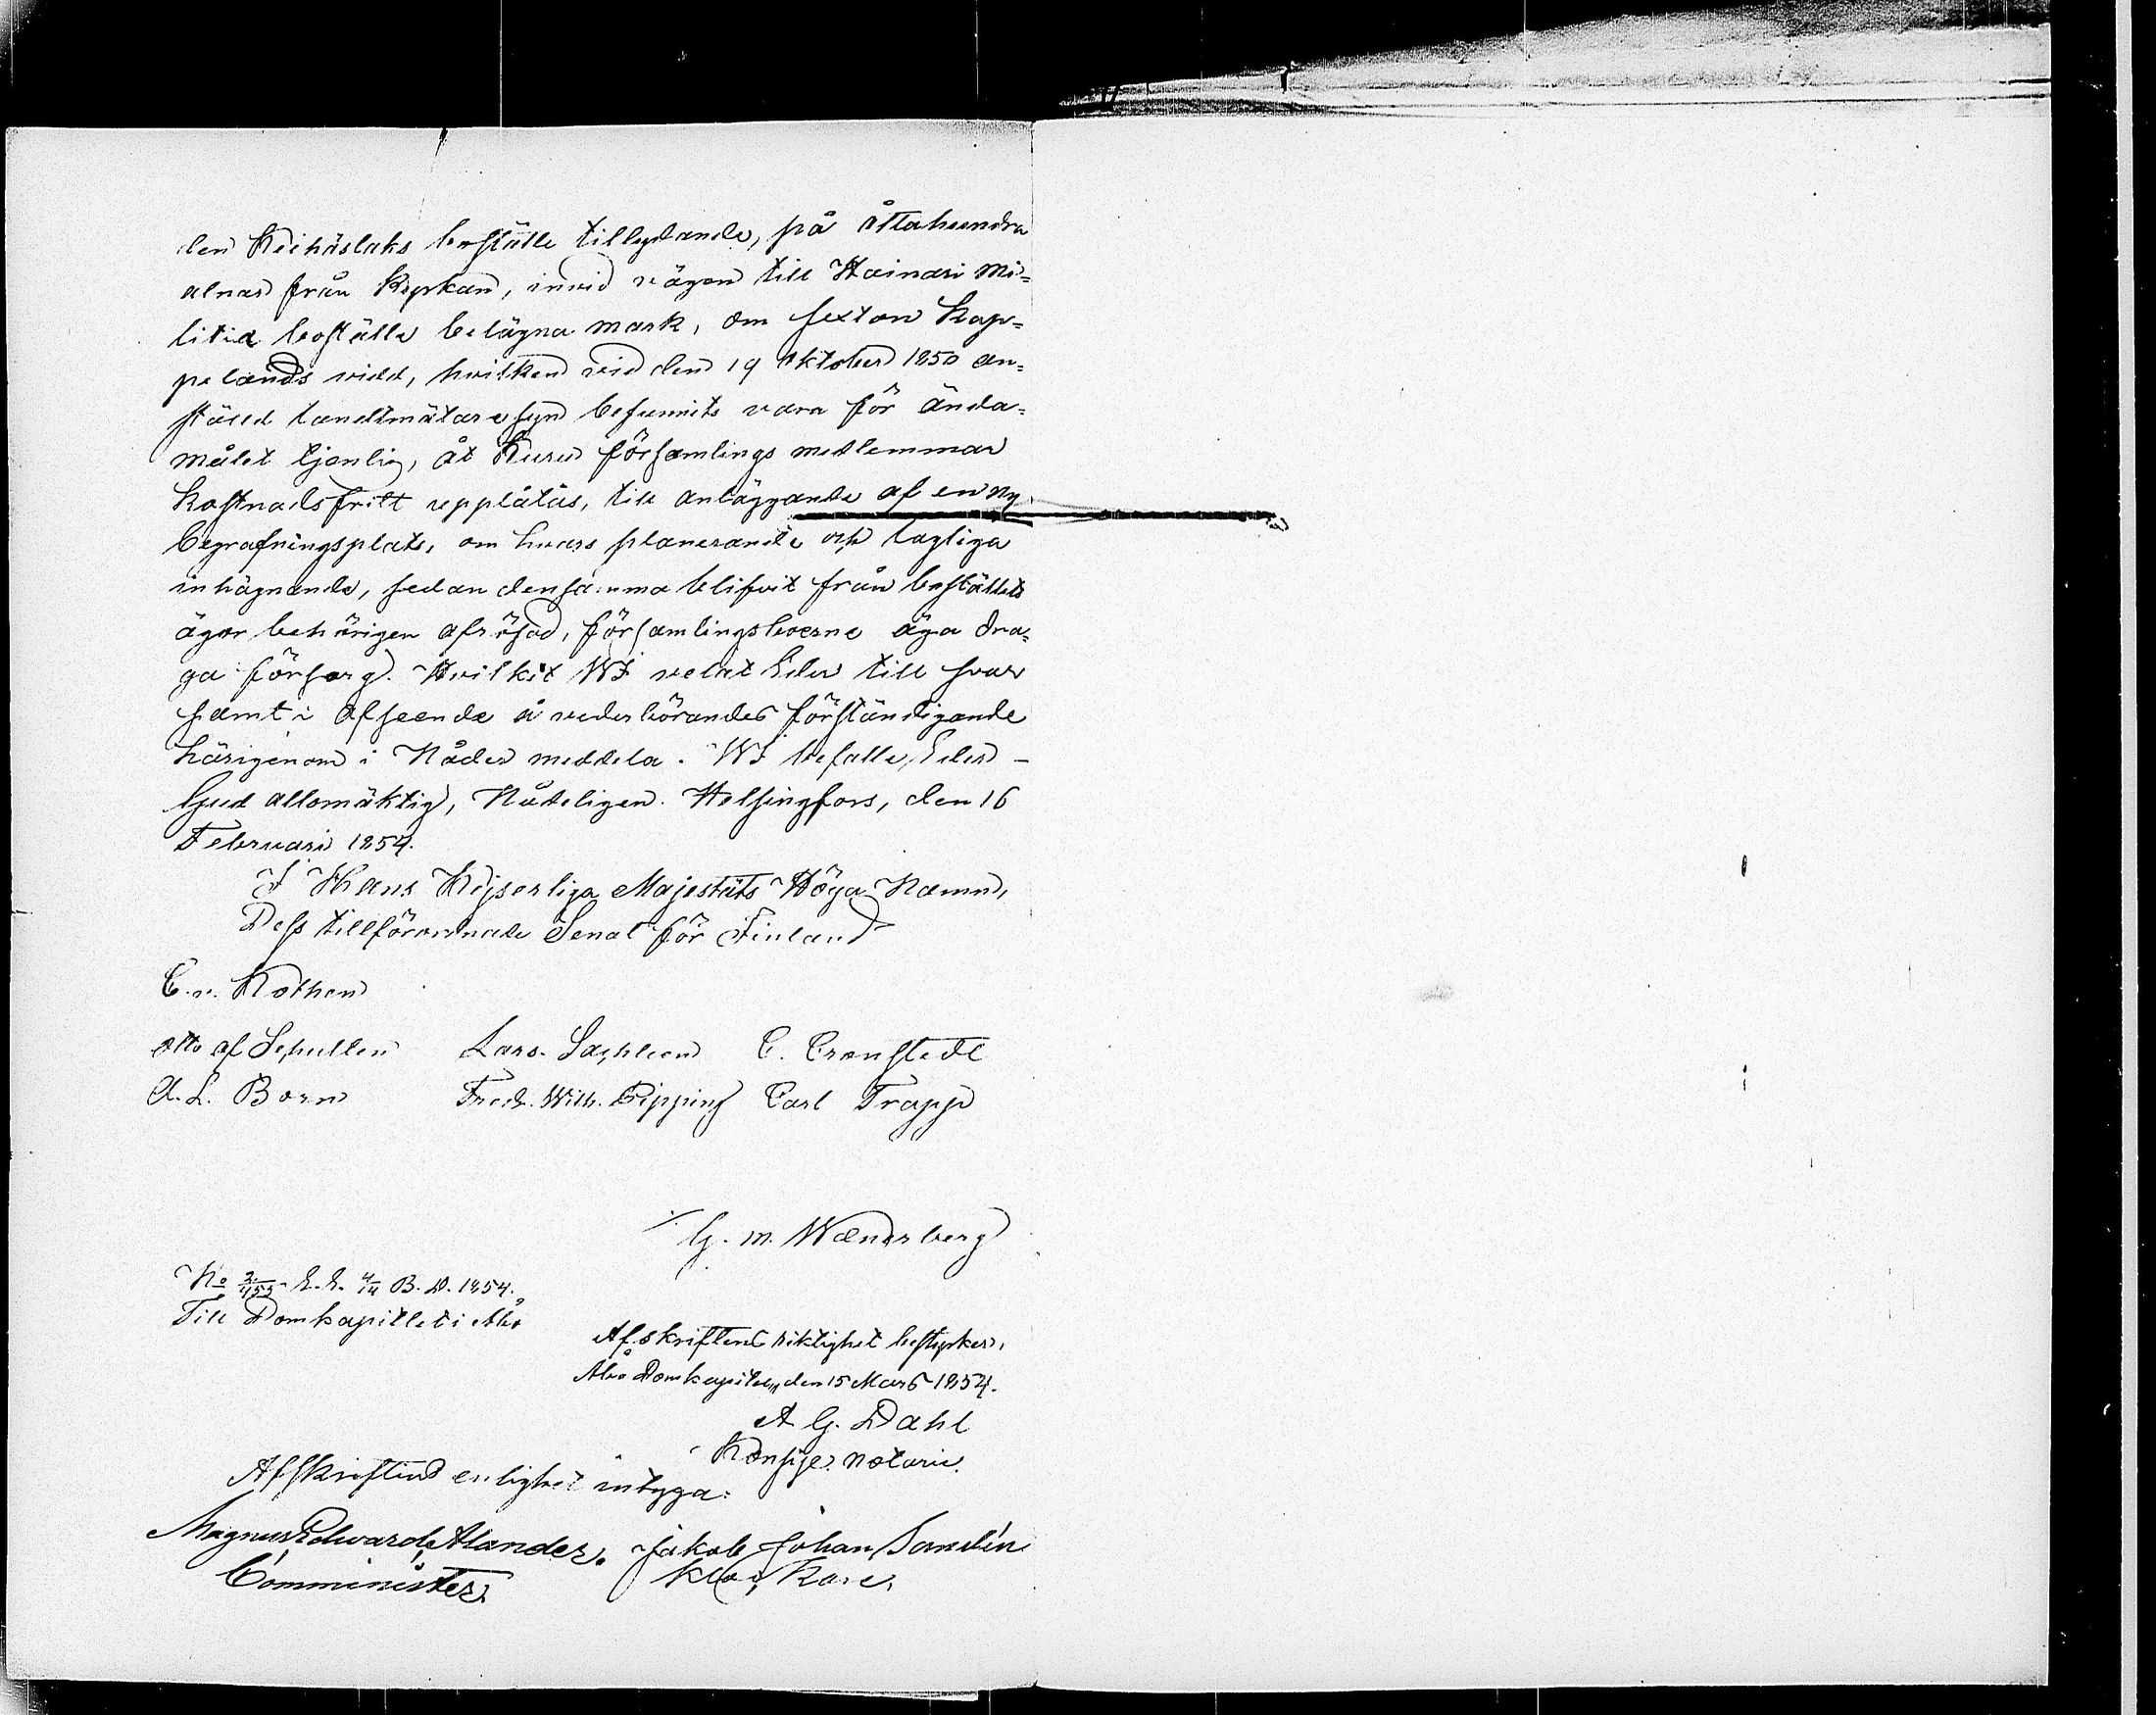 den Keihäslaks boställe tillydande, på åttahundra
alnar från kyrkan, invid vägen till Hainari mi-
litie boställe belägna mark, om sexton kap-
pelands vidd, hvilken vid den 19 Oktober 1850 an-
stäld landtmätaresyn befunnits vara för ända-
målet tjenlig, åt Kuru församlings medlemmar
kostnadsfritt upplåtas, till anläggande af en ny
begrafningsplats, om hvars planerande och lagliga
inhägnande, sedan densamma blifvit från boställets
ägor behörigen afrösad, församlingsboerne äga dra-
ga försorg. Hvilket WI velat Eder till svar
samt i afseende å vederbörandes förständigande
härigenom i Nåder meddela. WI befalle Eder
Gud allsmäktig, Nådeligen. Helsingfors, den 16
Februari 1854.
I Hans Kejserliga Majestäts Höga Namn,
Dess tillförordnade Senat för Finland
C. v. Kothen
Otto af Schulten Lars Sackleen C. Cronstedt
A. L. Born Fredr. Wilh. Pipping Carl Trapp
G. M. Wænerberg
No E. E. B. D. 1854.
Till Domkapitlet i Åbo
Afskriftens riktighet bestyrker,
Åbo Domkapitel, den 15 Mars 1854.
A G. Dahl
Konsist. Notarie.
Afskriftens enlighet intyga:
Magnus Edvard Alander, Jakob Johan Sandén
Comminister Klockare.